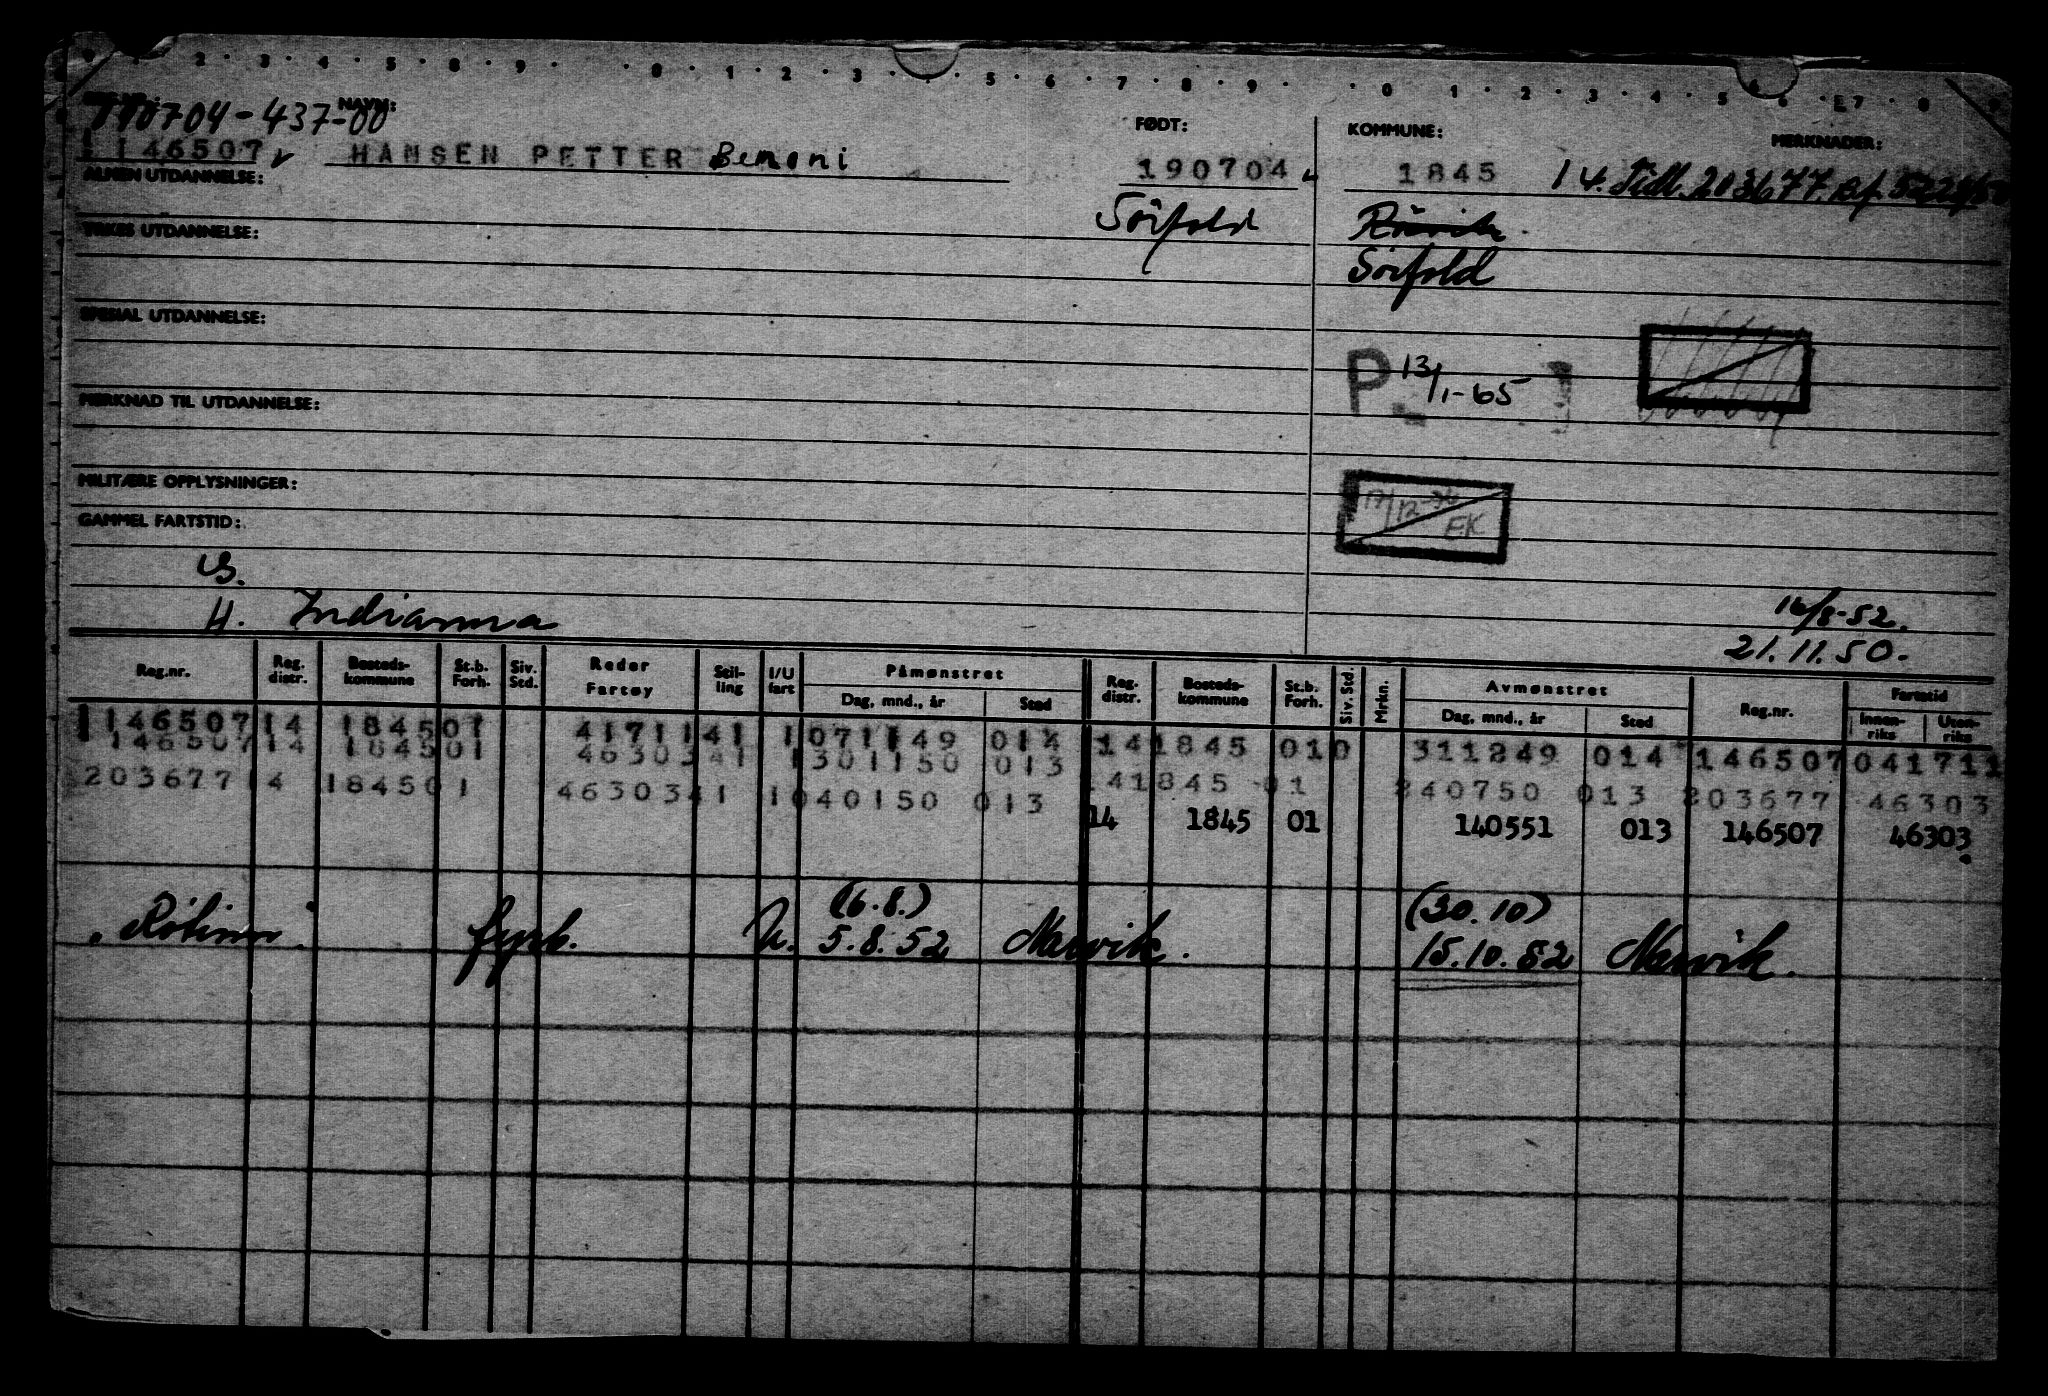 2 · 3 · 4 · 5 · 8 · 9 · · 0 · 1 · 2 · 3 · · 5 · 6 · 7 · 8 · 9 · · 0 · 1 · 2 · 3 · 4 · 5 · 6 · 7 · 8
NAVN:
190704-437-00
FØDT:
KOMMUNE:
MERKNADER:
1146507 HANSEN PETTER Bemoni
190704
1845
14. Tidl. 203677.
ALMEN UTDANNELSE:
Sörfold
Rövik
YRKES UTDANNELSE:
Sörfold
SPESIAL UTDANNELSE:
P 13/1-65
MERKNAD TIL UTDANNELSE:
MILITÆRE OPPLYSNINGER:
17/12 EK
GAMMEL FARTSTID:
B.
H. Indianna
16/8-52.
21.11.50.
Reg.nr. Reg. distr. Bosteds-kommune St.b. Forh. Siv. Std. Reder Fartøy Stil-ling I/U fart Påmønstret Dag, mnd., år Sted Reg. distr. Bosteds-kommune St.b. Forh. Siv. Std. Mrkn. Avmønstret Dag, mnd., år Sted Reg.nr. Fartstid Innen-riks Uten-riks
1146507 14 184501 4171141 1 071149 014 141845 010 311249 014 146507 041711
146507 14 184501 4630341 1 301150 013
203677 14 184501 4630341 1 040150 013 141845 01 240750 013 203677 46303
14 1845 01 140551 013 146507 46303
(6.8.) (30.10)
fyrb. U. 5.8.52 Narvik. 15.10.52 Narvik.